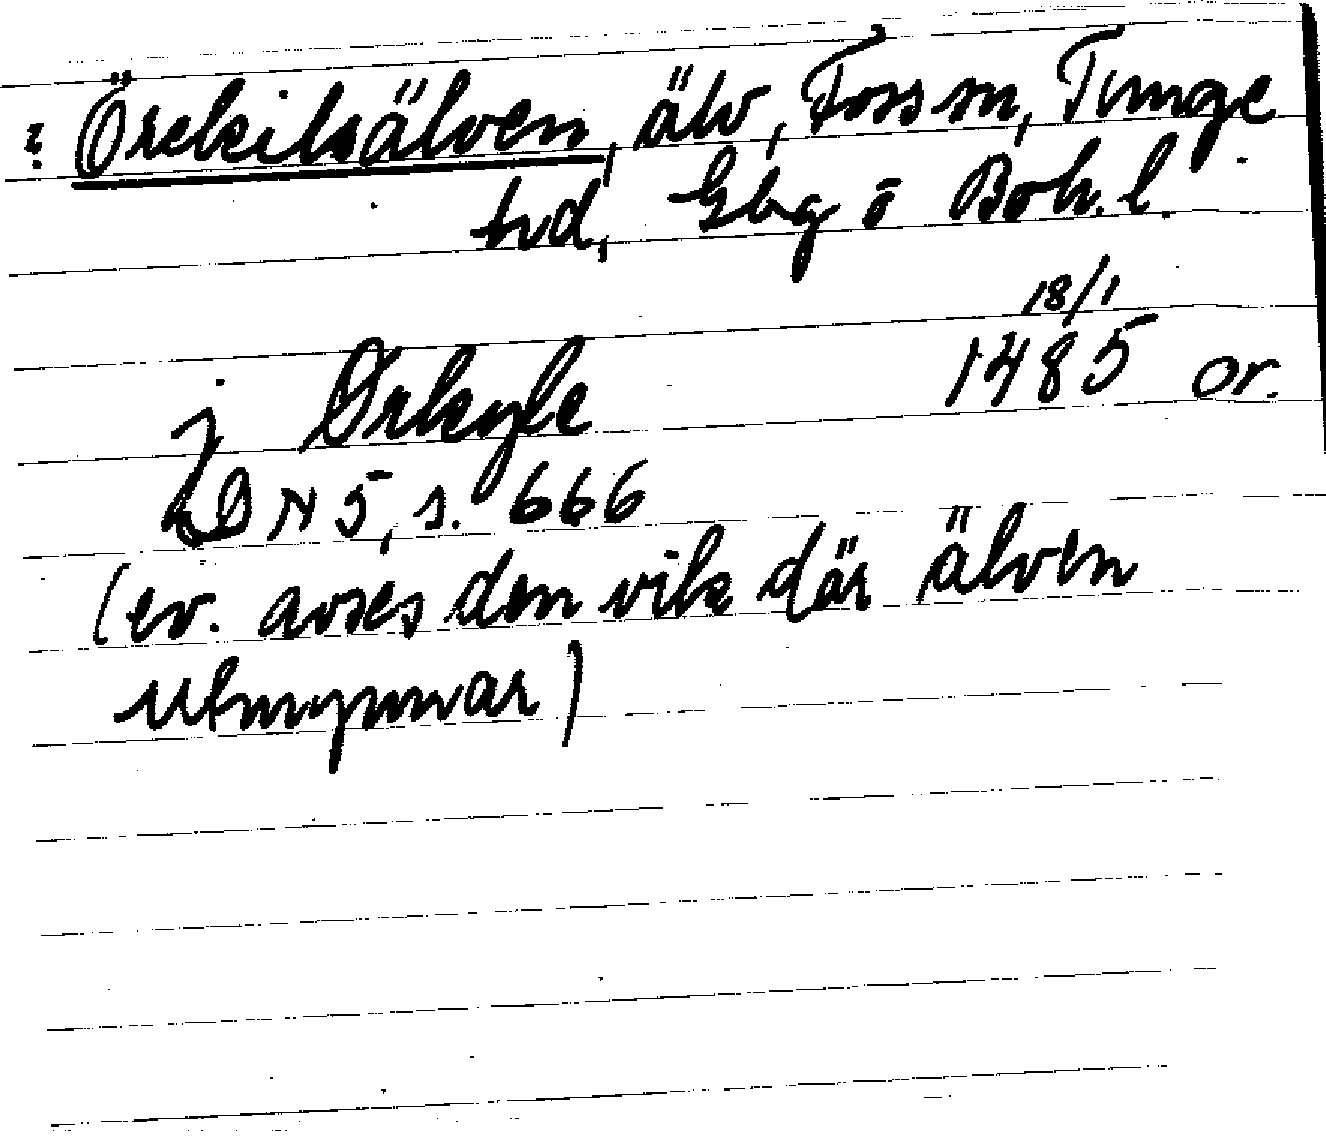 ? Örekilsälven, älv, Foss sn, Tunge
hd, Gbg o Boh. l.
18/1
j Ørkyle 1485 or.
DN 5, s. 666
(ev. avses den vik där älven
utmynnar)